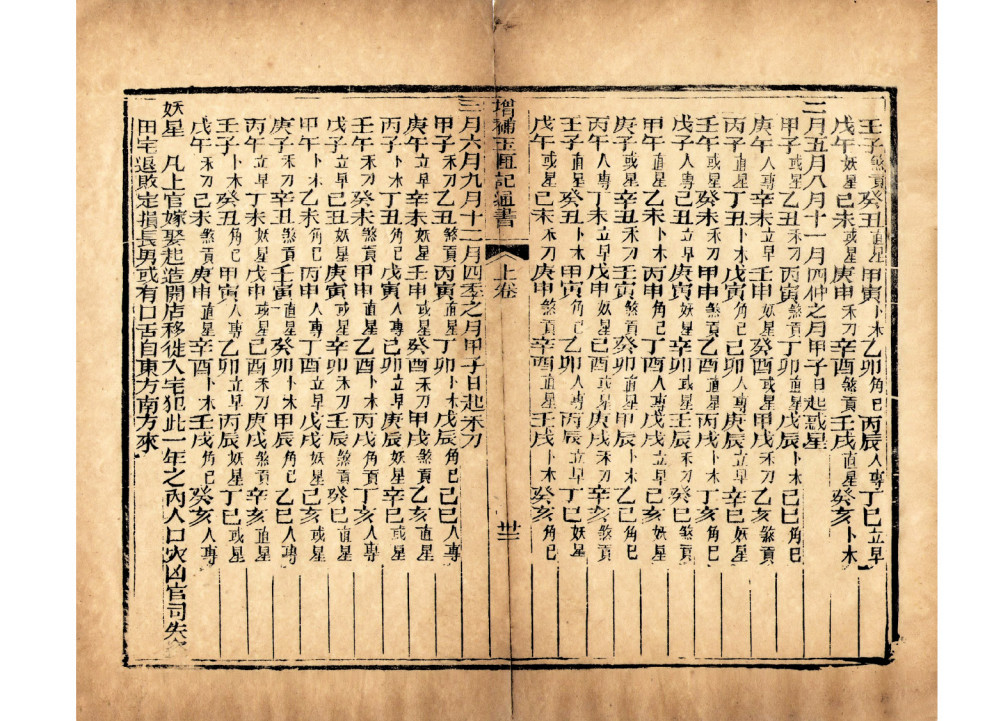 壬子煞貢癸丑直星甲寅卜木乙卯角己丙辰人專丁巳立早
戊午妖星己未或星庚申禾刀辛酉煞貢壬戌直星癸亥卜木
二月五月八月十一月四仲之月甲子日起惑星
甲子或星乙丑禾刀丙寅煞貢丁卯直星戊辰卜木己巳角己
庚午人專辛未立早壬申妖星癸酉或星甲戌禾刀乙亥煞貢
丙子直星丁丑卜木戊寅角己己卯人專庚辰立早辛巳妖星
壬午或星癸未禾刀甲申煞貢乙酉直星丙戌卜木丁亥角己
戊子人專己丑立早庚寅妖星辛卯或星壬辰禾刀癸巳煞貢
甲午直星乙未卜木丙申角己丁酉人專戊戌立早己亥妖星
庚子或星辛丑禾刀壬寅煞貢癸卯直星甲辰卜木乙巳角己
丙午人專丁未立早戊申妖星己酉或星庚戌禾刀辛亥煞貢
壬子直星癸丑卜木甲寅角己乙卯人專丙辰立早丁巳妖星
戊午或星己未禾刀庚申煞貢辛酉直星壬戌卜木癸亥角己
增補玉匣記通書 上卷 廿二
三月六月九月十二月四季之月甲子日起禾刀
甲子禾刀乙丑煞貢丙寅直星丁卯卜木戊辰角己己巳人專
庚午立早辛未妖星壬申或星癸酉禾刀甲戌煞貢乙亥直星
丙子卜木丁丑角己戊寅人專己卯立早庚辰妖星辛巳或星
壬午禾刀癸未煞貢甲申直星乙酉卜木丙戌角己丁亥人專
戊子立早己丑妖星庚寅或星辛卯禾刀壬辰煞貢癸巳直星
甲午卜木乙未角己丙申人專丁酉立早戊戌妖星己亥或星
庚子禾刀辛丑煞貢壬寅直星癸卯卜木甲辰角己乙巳人專
丙午立早丁未妖星戊申或星己酉禾刀庚戌煞貢辛亥直星
壬子卜木癸丑角己甲寅人專乙卯立早丙辰妖星丁巳或星
戊午禾刀己未煞貢庚申直星辛酉卜木壬戌角己癸亥人專
妖星 凡上官嫁娶起造開店移徙入宅犯此一年之內人口災凶官司失
田宅退敗定損長男或有口舌自東方南方來